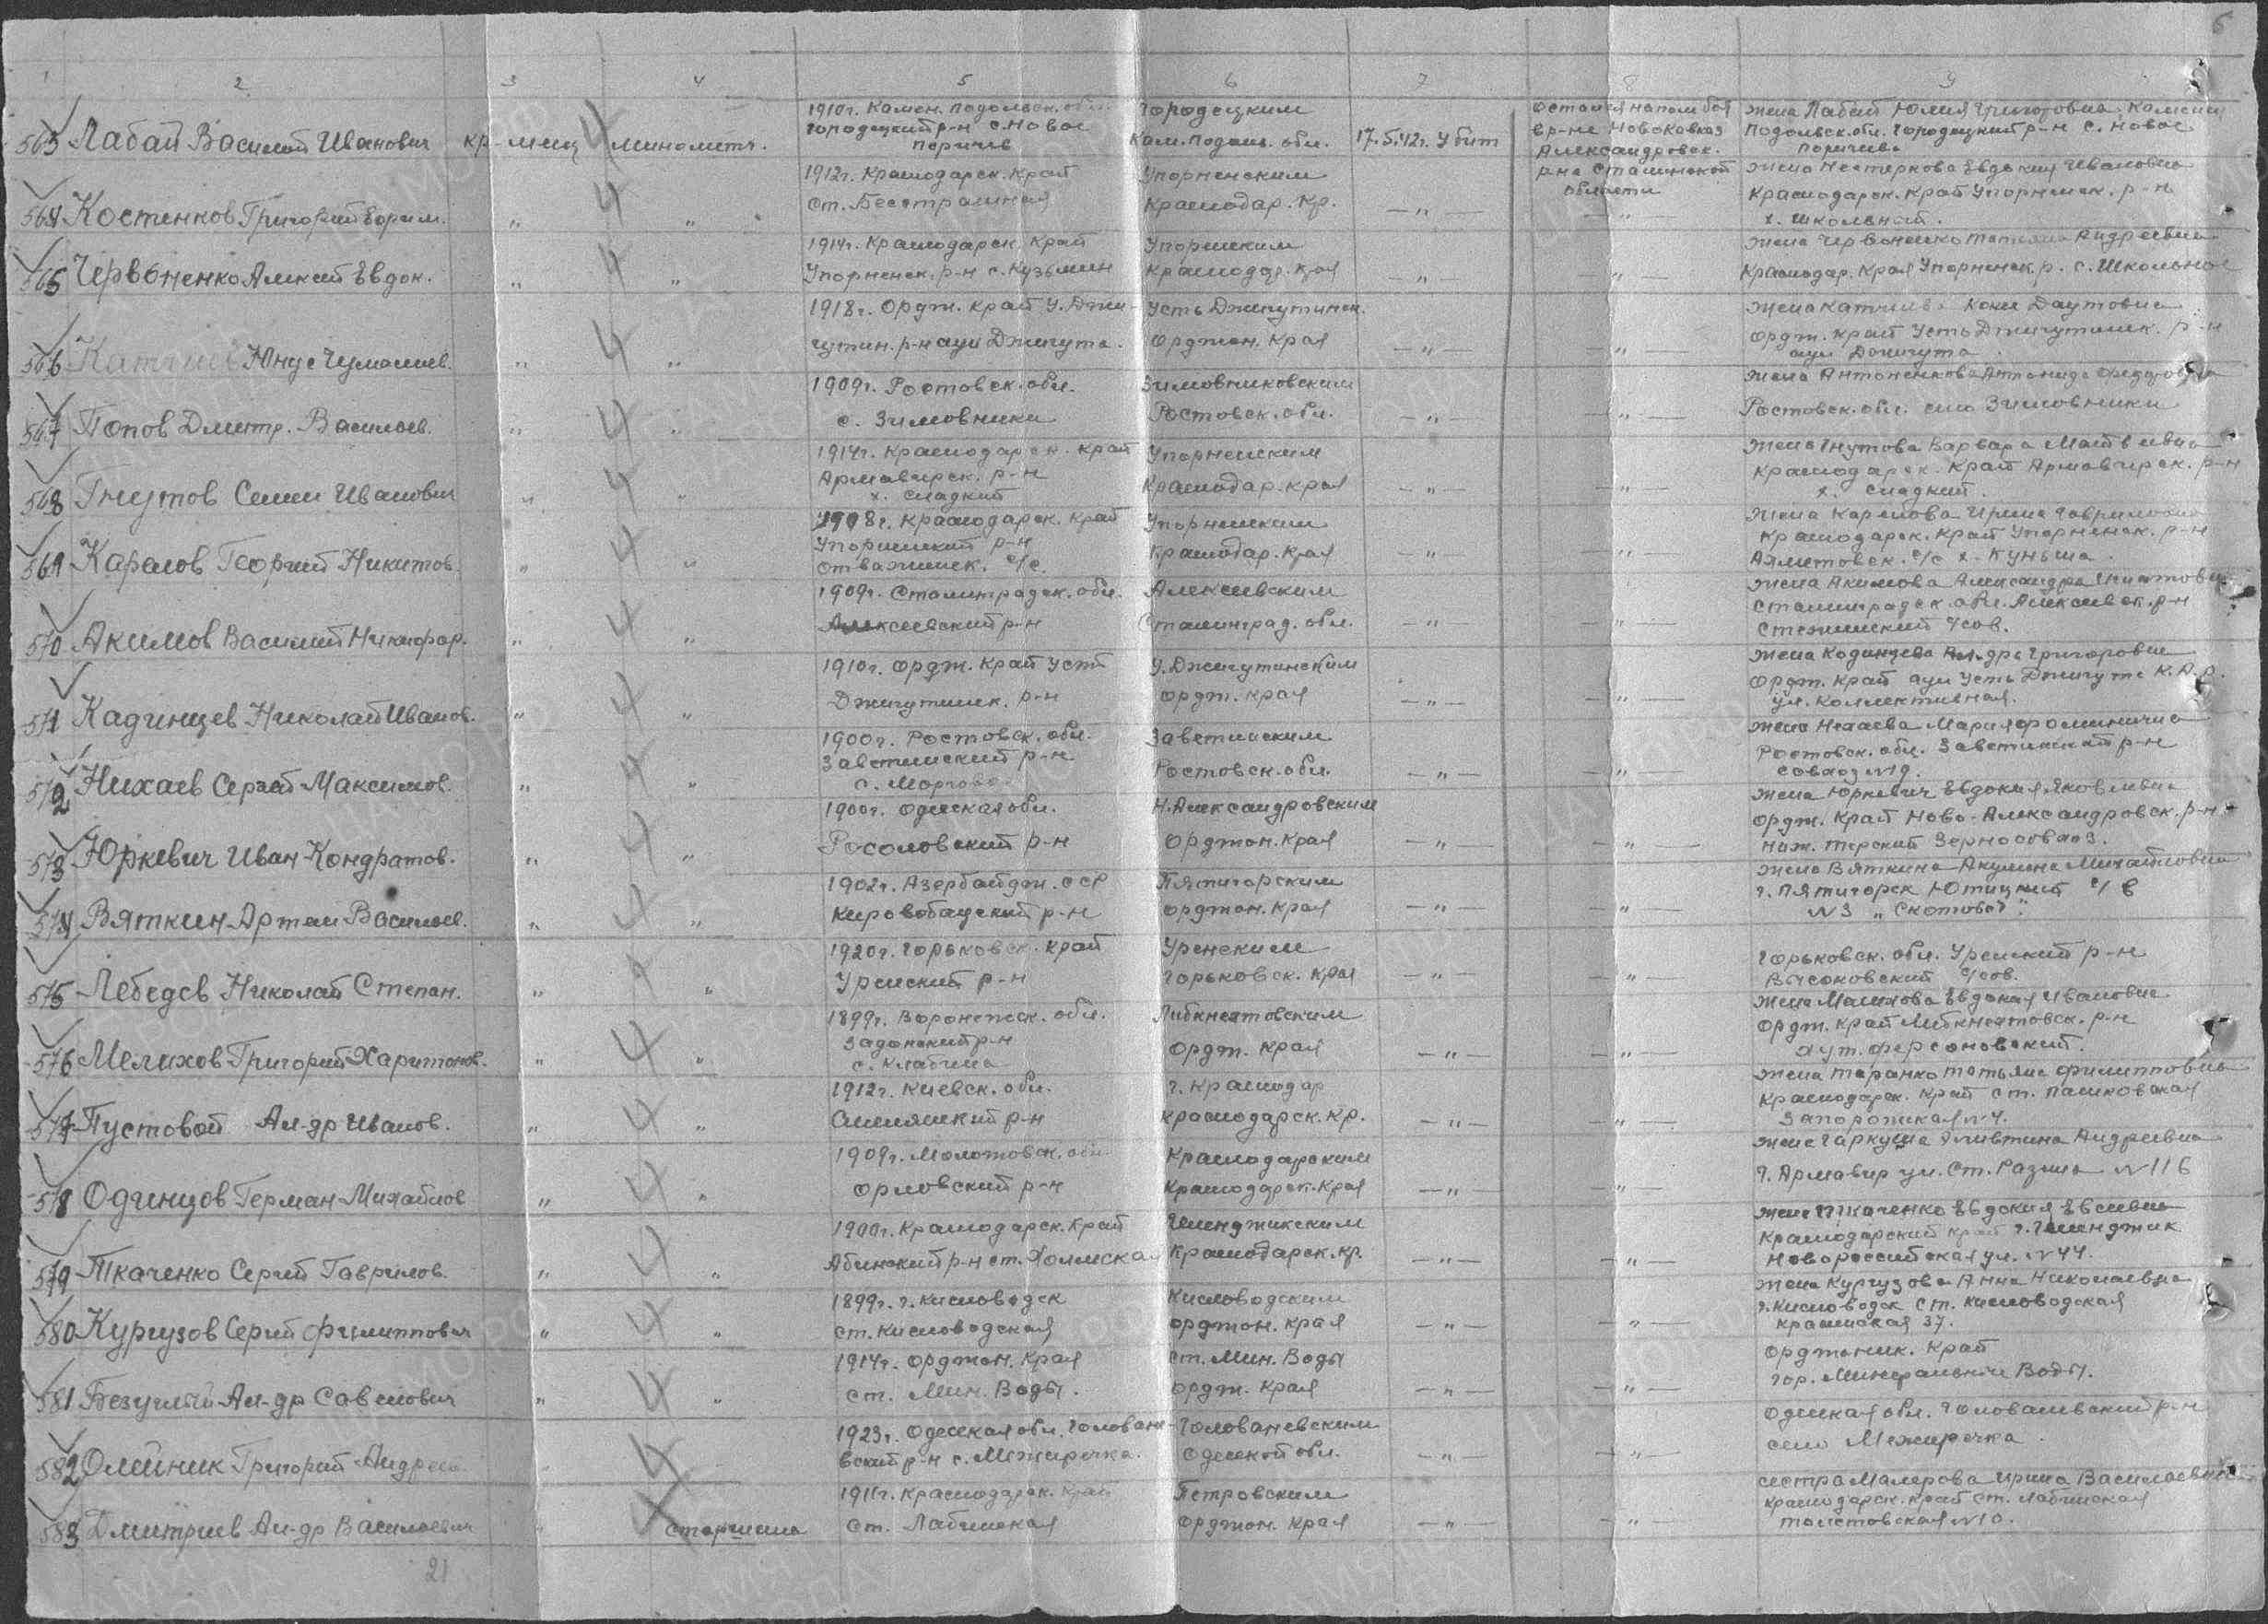 6
1 2 3 4 5 6 7 8 9
563 Лабай Василий Иванович кр-меец 4 минометч. 1910г. Камен. Подольск. обл. Городецкий р-н с. Новое Поричив Городецким Кам. Подаль. обл. 17.5.42г. Убит Остался на поле боя в р-не Новояковка Александровск. р-на Сталинской области жена Лабай Юлия Григоровна Каменец Подольск. обл. Городецкий р-н с. Новое Поричив
564 Костенков Григорий Ефрем. " 4 " 1912г. Краснодарск. край ст. Бесстрашная Упорненским Краснодар. кр. —"— —"— жена Нестеркова Евдокия Ивановна Краснодарск. край Упорненск. р-н х. Школьный.
565 Червоненко Алексей Евдок. " 4 " 1914г. Краснодарск. край Упорненск. р-н с. Кузьмин Упорненским Краснодар. края —"— —"— жена Червоненко Татьяна Андреевна Краснодар. края Упорненск. р. с. Школьное
566 Катчиев Юнус Чумалиев. " 4 " 1918г. Ордж. край У. Джигутин. р-н аул Джигута. Усть Джигутинск. Орджон. края —"— —"— жена Катчиева Даутовна Ордж. край Усть Джигутинск. р-н аул Джигута.
567 Попов Дмитр. Васильев. " 4 " 1909г. Ростовск. обл. с. Зимовники Зимовниковским Ростовск. обл. —"— —"— жена Антоненкова Антонида Федоровна Ростовск. обл. село Зимовники
568 Гнутов Семен Иванович " 4 " 1914г. Краснодарск. край Армавирск. р-н х. Сладкий Упорненским Краснодар. края —"— —"— жена Гнутова Варвара Матвеевна Краснодарск. край Армавирск. р-н х. Сладкий.
569 Карелов Георгий Никитов. " 4 " 1908г. Краснодарск. край Упорненский р-н Отважненск. с/с. Упорненским Краснодар. края —"— —"— жена Карелова Ирина Гавриловна Краснодарск. край Упорненск. р-н Ахметовск. с/с х. Куньша.
570 Акимов Василий Никифор. " 4 " 1909г. Сталинградск. обл. Алексеевский р-н Алексеевским Сталинград. обл. —"— —"— жена Акимова Александра Игнатовна Сталинградск. обл. Алексеевск. р-н Стеженский с/сов.
571 Кадинцев Николай Иванов. " 4 " 1910г. Ордж. край Усть Джигутинск. р-н У. Джигутинским Ордж. края —"— —"— жена Кодинцева Ал-дра Григоровна Ордж. край аул Усть Джигута К.А.О. ул. Коллективная.
572 Нихаев Сергей Максимов. " 4 " 1900г. Ростовск. обл. Заветинский р-н Заветинским Ростовск. обл. —"— —"— жена Нехаева Мария Фоминична Ростовск. обл. Заветинский р-н совхоз №19.
573 Юркевич Иван Кондратов. " 4 " 1900г. Одесская обл. Росоловский р-н Н. Александровским Орджон. края —"— —"— жена Юркевич Евдокия Яковлевна Ордж. край Ново-Александровск. р-н Ниж. терский Зерносовхоз.
574 Вяткин Артем Васильев. " 4 " 1902г. Азербайдж. ССР Кировобадский р-н Пятигорским Орджон. края —"— —"— жена Вяткина Акулина Михайловна г. Пятигорск Ютицкий с/в №3 "Скотовод".
575 Лебедев Николай Степан. " 4 " 1920г. Горьковск. край Уренский р-н Уренским Горьковск. края —"— —"— Горьковск. обл. Уренский р-н Высоковский с/сов.
576 Мелихов Григорий Харитонов. " 4 " 1899г. Воронежск. обл. Задонский р-н с. Клабина Либкнехтовским Ордж. края —"— —"— жена Малихова Евдокия Ивановна Ордж. край Либкнехтовск. р-н хут. Фарсоновский.
577 Пустовой Ал-др Иванов. " 4 " 1912г. Киевск. обл. Смелянский р-н г. Краснодар Краснодарск. кр. —"— —"— жена Таранко Татьяна Филипповна Краснодарск. край ст. Пашковская Запорожская №4.
578 Одинцов Герман Михайлов " 4 " 1909г. Молотовск. обл. Орловский р-н Краснодарским Краснодарск. края —"— —"— жена Гаркуша Аливтина Андреевна г. Армавир ул. Ст. Разина №116
579 Ткаченко Сергей Гаврилов. " 4 " 1900г. Краснодарск. край Абинский р-н ст. Холмская Геленджикским Краснодарск. кр. —"— —"— жена Ткаченко Евдокия Евсеевна Краснодарский край г. Геленджик Новороссийская ул. №44.
580 Кургузов Сергей Филиппович " 4 " 1899г. г. Кисловодск ст. Кисловодская Кисловодским Орджон. края —"— —"— жена Кургузова Анна Николаевна г. Кисловодск ст. Кисловодская 37.
581 Безуглый Ал-др Савелович " 4 " 1914г. Орджон. края ст. Мин. Воды. ст. Мин. Воды Ордж. края —"— —"— Орджоник. край гор. Минеральные Воды.
582 Олейник Григорий Андреев. " 4 1923г. Одесская обл. Голованевский р-н с. Межиречка. Голованевским Одесской обл. —"— —"— Одесская обл. Голованевский р-н село Межиречка.
583 Дмитриев Ал-др Васильевич " 4 старшина 1911г. Краснодарск. край ст. Лабинская Петровским Орджон. края —"— —"— сестра Малерова Ирина Васильевна Краснодарск. край ст. Лабинская Толстовская №10.
21